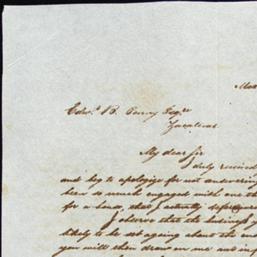 Edwd. B. Perry Esqre.
Zacatecas
My dear Sir
I duly received
and beg to apologize for not answering
been so much engaged with one
for a house, that I actually
I observe that the
likely to be set agoing about the
you will then draw on me and